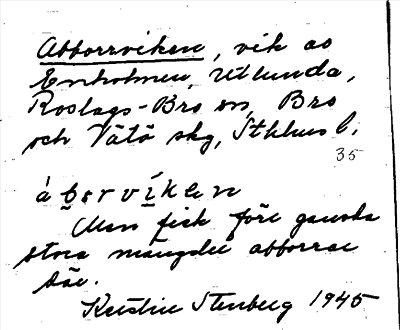 Abborrviken, vik av
Enholmen, Utlunda,
Roslags-Bro sn, Bro
och Vätö skg, Sthlms l.
35
Man fick förr ganska
stora mängder abborrar
där.
Kerstin Stenberg 1945